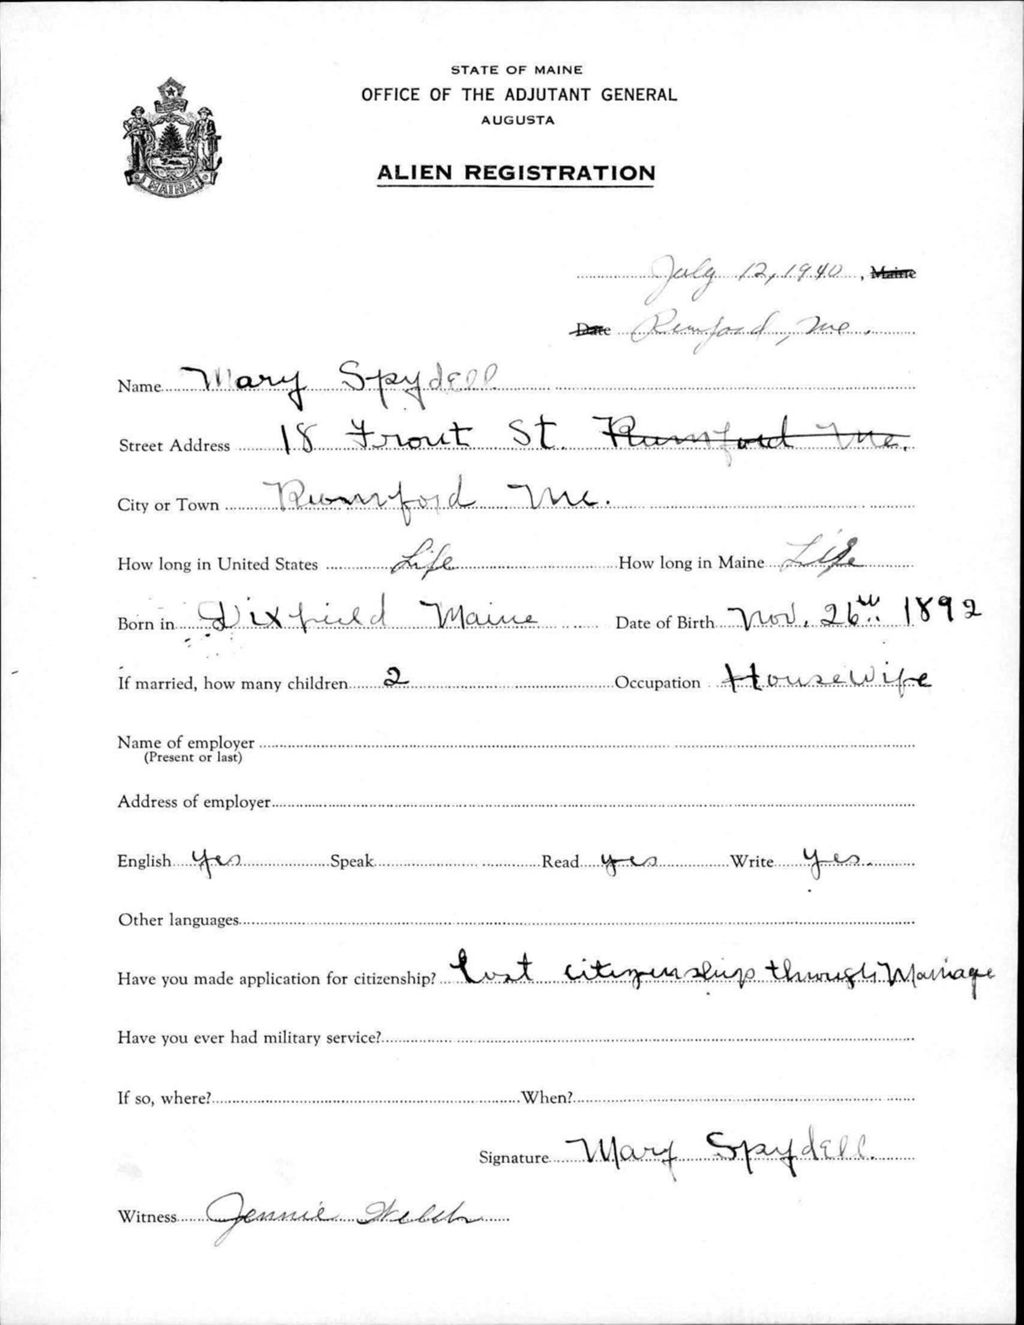 STATE OF MAINE
OFFICE OF THE ADJUTANT GENERAL
AUGUSTA
ALIEN REGISTRATION
MAINE
July 12, 1940, Maine
Date Rumford, Me.
Name Mary Spydell
Street Address 18 Front St. Rumford Me.
City or Town Rumford Me.
How long in United States Life How long in Maine Life
Born in Dixfield Maine Date of Birth Nov. 26th 1892
If married, how many children 2 Occupation Housewife
Name of employer
(Present or last)
Address of employer
English yes Speak Read yes Write yes.
Other languages
Have you made application for citizenship? Lost citizenship through Marriage
Have you ever had military service?
If so, where? When?
Signature Mary Spydell.
Witness Jennie Welch